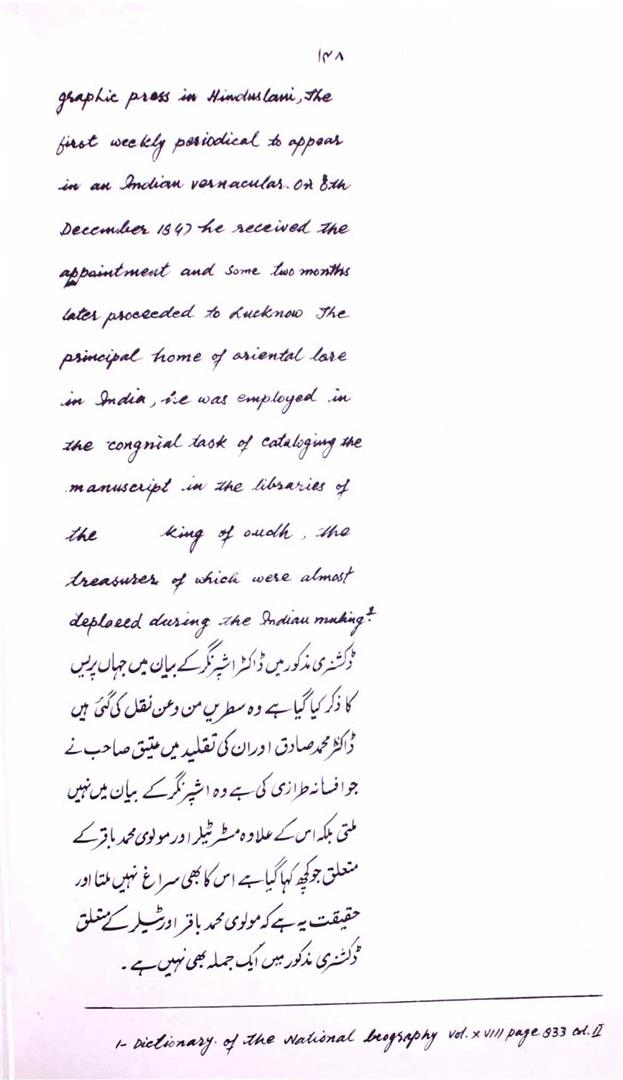 ۱۴۸
graphic press in Hinduslani, the
first weekly periodical to appear
in an Indian vernacular. On 8th
December 1847 he received the
appaintment and some two months
later proceeded to Lucknow The
principal home of oriental lore
in India, he was employed in
the congnial task of cataloging the
manuscript in the libraries of
the king of oudh, the
treasures of which were almost
during the Indian
ڈکشنری مذکور میں ڈاکٹر اشپرنگر کے بیان میں جہاں پریس
کا ذکر کیا گیا ہے وہ سطریں من وعن نقل کی گئی ہیں
ڈاکٹر محمد صادق اور ان کی تقلید میں عتیق صاحب نے
جو افسانہ طرازی کی ہے وہ اشپرنگر کے بیان میں نہیں
ملتی بلکہ اس کے علاوہ مسٹر ٹیلر اور مولوی محمد باقر کے
متعلق جو کچھ کہا گیا ہے اس کا بھی سراغ نہیں ملتا اور
حقیقت یہ ہے کہ مولوی محمد باقر اور ٹیلر کے متعلق
ڈکشنری مذکور میں ایک جملہ بھی نہیں ہے ۔
1- Dictionary. of the National biography vol. XVIII page 833 col. II